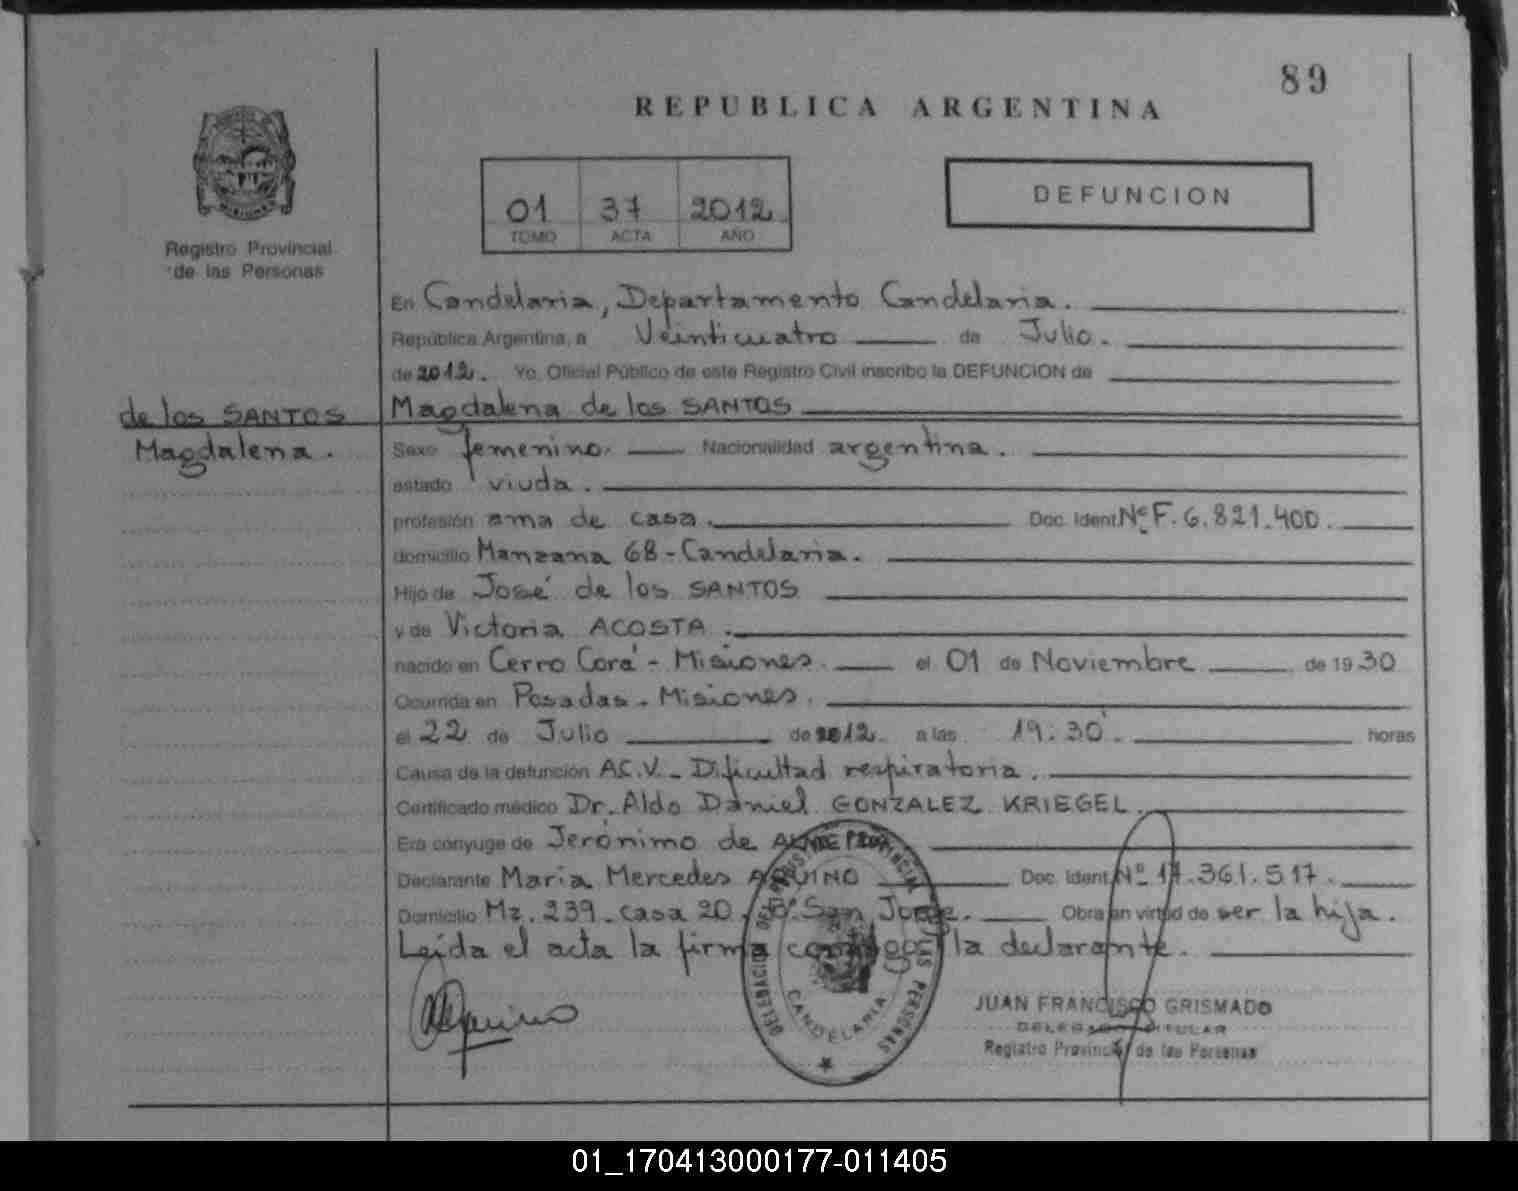 89
REPUBLICA ARGENTINA
01 37 2012
TOMO ACTA AÑO
DEFUNCION
MISIONES
Registro Provincial
de las Personas
En Candelaria, Departamento Candelaria.
República Argentina, a Veinticuatro de Julio.
de 2012. Yo, Oficial Público de este Registro Civil inscribo la DEFUNCION de
de los SANTOS Magdalena de los SANTOS
Magdalena. Sexo femenino. Nacionalidad argentina.
estado viuda.
profesión ama de casa. Doc. Ident. Nº F. 6.821.400.
domicilio Manzana 68 - Candelaria.
Hijo de José de los SANTOS
y de Victoria ACOSTA.
nacido en Cerro Corá - Misiones. el 01 de Noviembre de 1930
Ocurrida en Posadas - Misiones.
el 22 de Julio de 2012. a las 19:30. horas
Causa de la defunción AC.V. - Dificultad respiratoria.
Certificado médico Dr. Aldo Daniel GONZALEZ KRIEGEL.
Era cónyuge de Jerónimo de
Declarante María Mercedes AQUINO Doc. Ident. Nº 17.361.517.
Domicilio Mz. 239 - casa 20. Bº San Jorge. Obra en virtud de ser la hija.
Leída el acta la firma conmigo la declarante.
DELEGACION DEL REGISTRO PROVINCIAL DE LAS PERSONAS
CANDELARIA
JUAN FRANCISCO GRISMADO
DELEGADO TITULAR
Registro Provincial de las Personas
01_170413000177-011405